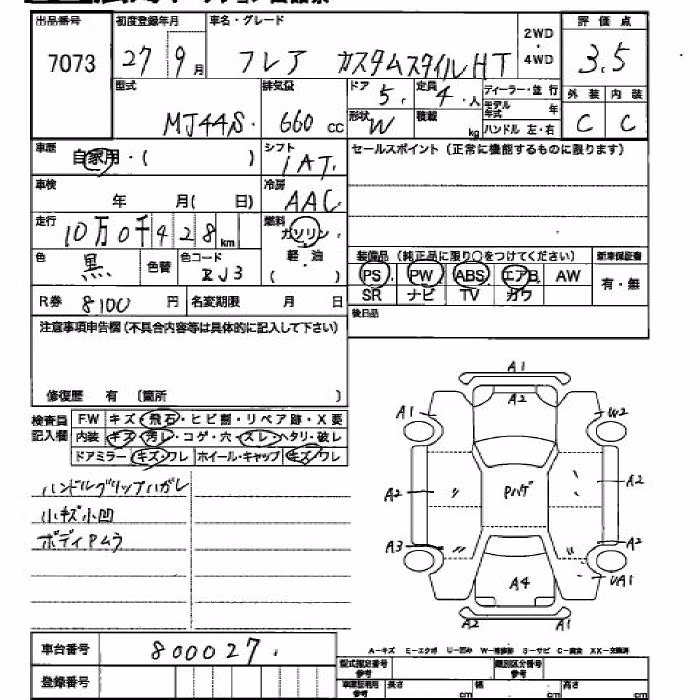 出品番号 初度登録年月 車名・グレード 2WD・4WD 評価点
7073 27 9月 フレア カスタムスタイルHT 3.5
型式 排気量 ドア 定員 ディーラー・並行 外装 内装
MJ44S 660cc 5 4人 モデル年式 年 C C
形状 W 積載 kg ハンドル 左・右
車歴 自家用・( ) シフト セールスポイント(正常に機能するものに限ります)
IAT
車検 年 月( 日) 冷房
AAC
走行 燃料
10万0千428km ガソリン
色 色替 色コード 軽・油 装備品(純正品に限り○をつけてください) 新車保証書
黒 ZJ3 ( ) PS PW ABS エアB AW 有・無
R券 8100円 名変期限 月 日 SR ナビ TV カワ
注意事項申告欄(不具合内容等は具体的に記入して下さい) 後日品
修復歴 有 (箇所 )
検査員記入欄 FW キズ・飛石・ヒビ割・リペア跡・X要
内装 キズ・汚レ・コゲ・穴・スレ・ヘタリ・破レ
ドアミラー キズ・ワレ ホイール・キャップ キズ・ワレ
ハンドルグリップハガレ
小キズ小凹
ボディPムラ
A1
A2
A1 W2
A2 Pハゲ A2
A3 A2
A4 UA1
A2 A1
車台番号 800027
A-キズ E-エクボ U-凹み W-補修跡 S-サビ C-腐食 XX-交換済
登録番号 型式指定番号 参考 類別区分番号 参考
長さ cm 幅 cm 高さ cm